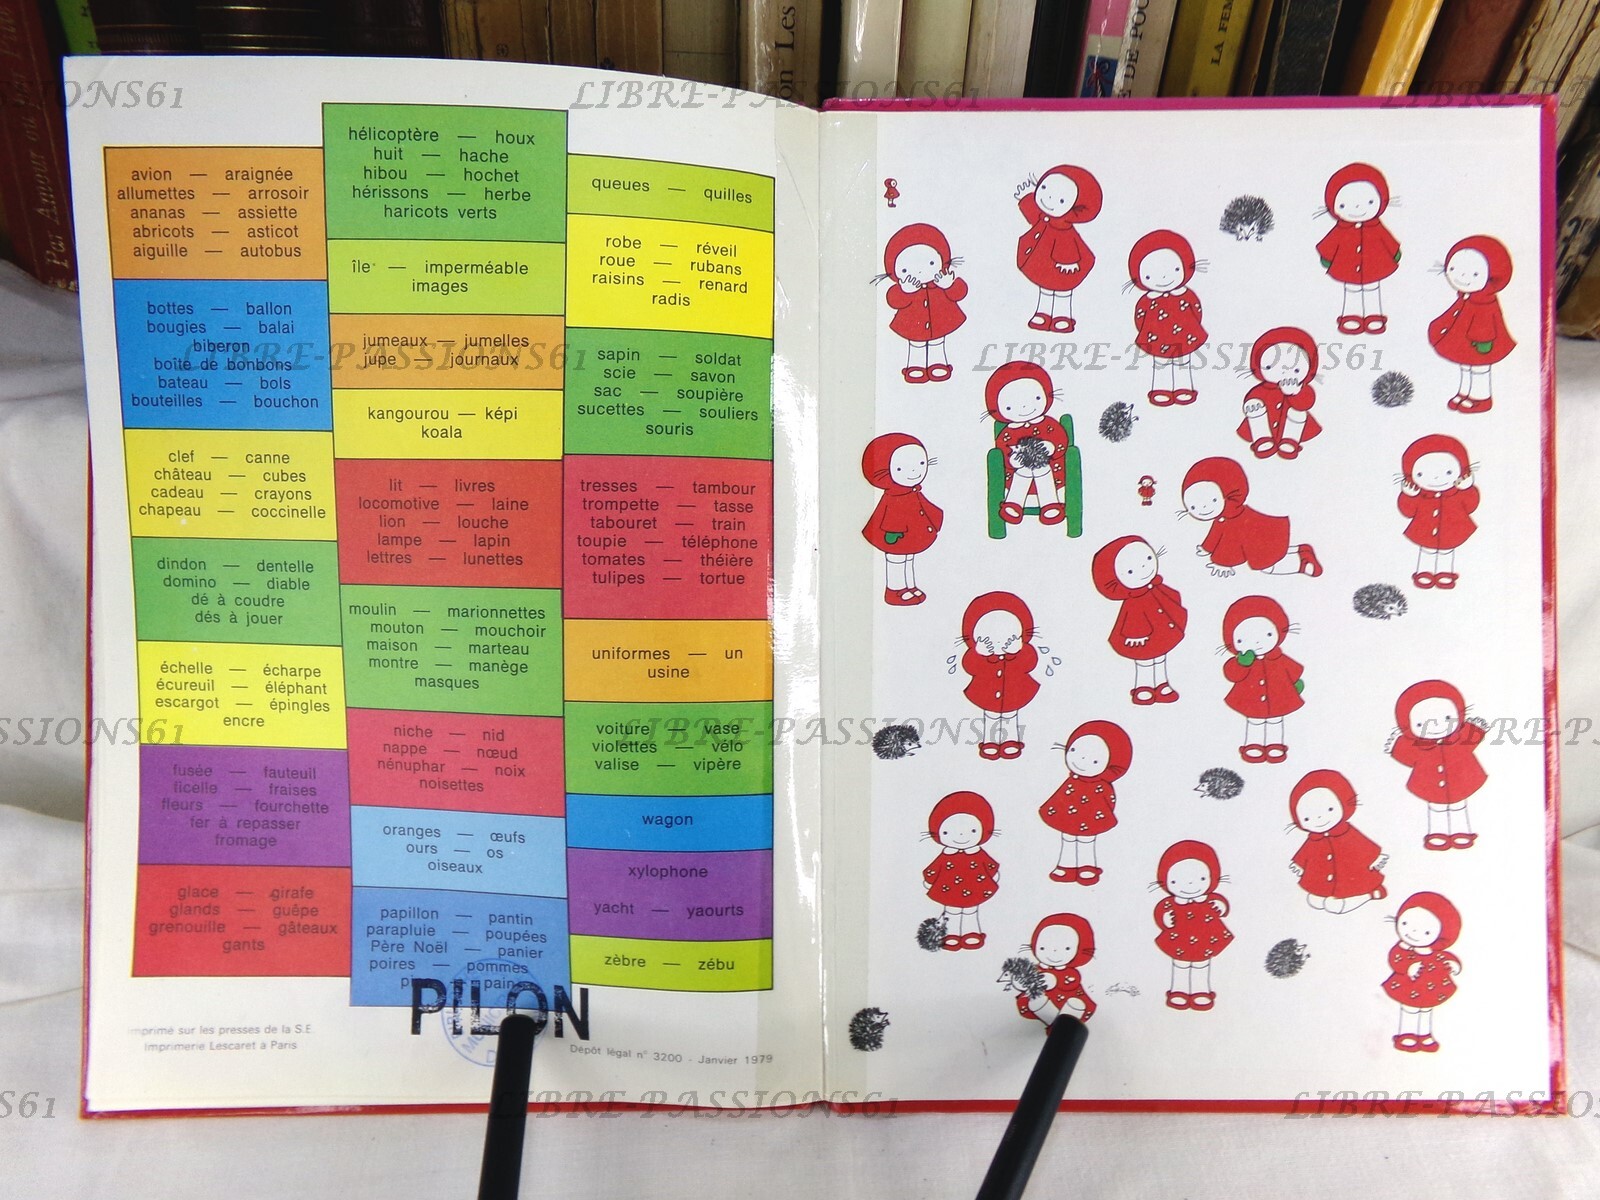 LIBRE-PASSIONS61
avion — araignée
allumettes — arrosoir
ananas — assiette
abricots — asticot
aiguille — autobus
bottes — ballon
bougies — balai
biberon
boîte de bonbons
bateau — bols
bouteilles — bouchon
clef — canne
château — cubes
cadeau — crayons
chapeau — coccinelle
dindon — dentelle
domino — diable
dé à coudre
dés à jouer
échelle — écharpe
écureuil — éléphant
escargot — épingles
encre
fusée — fauteuil
ficelle — fraises
fleurs — fourchette
fer à repasser
fromage
glace — girafe
glands — guêpe
grenouille — gâteaux
gants
hélicoptère — houx
huit — hache
hibou — hochet
hérissons — herbe
haricots verts
île — imperméable
images
jumeaux — jumelles
jupe — journaux
kangourou — képi
koala
lit — livres
locomotive — laine
lion — louche
lampe — lapin
lettres — lunettes
moulin — marionnettes
mouton — mouchoir
maison — marteau
montre — manège
masques
niche — nid
nappe — nœud
nénuphar — noix
noisettes
oranges — œufs
ours — os
oiseaux
papillon — pantin
parapluie — poupées
Père Noël — panier
poires — pommes
queues — quilles
robe — réveil
roue — rubans
raisins — renard
radis
sapin — soldat
scie — savon
sac — soupière
sucettes — souliers
souris
tresses — tambour
trompette — tasse
tabouret — train
toupie — téléphone
tomates — théière
tulipes — tortue
uniformes — un
usine
voiture — vase
violettes — vélo
valise — vipère
wagon
xylophone
yacht — yaourts
zèbre — zébu
PILON
Imprimé sur les presses de la S.E.
Imprimerie Lescaret à Paris
Dépôt légal n° 3200 - Janvier 1979
LIBRE-PASSIONS61
LIBRE-PASSIONS61
LIBRE-PASSIONS61
LIBRE-PASSIONS61